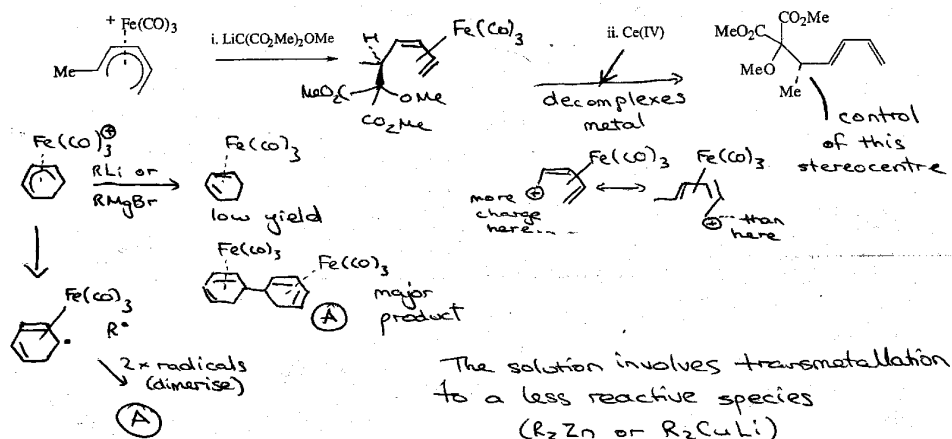 + Fe(CO)3
Me
i. LiC(CO2Me)2OMe
H
Fe(CO)3
MeO2C
OMe
CO2Me
ii. Ce(IV)
decomplexes
metal
CO2Me
MeO2C
CO2Me
MeO
Me
control
of this
stereocentre
Fe(CO)3 ⊕
RLi or
RMgBr
Fe(CO)3
low yield
Fe(CO)3
Fe(CO)3
major
product
A
⊕
Fe(CO)3
more
charge
here....
Fe(CO)3
⊕
....than
here
Fe(CO)3
R•
2 x radicals
(dimerise)
A
The solution involves transmetallation
to a less reactive species
(R2Zn or R2CuLi)